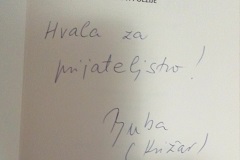 Hvala za
prijateljstvo!
Ljuba
(Križar)